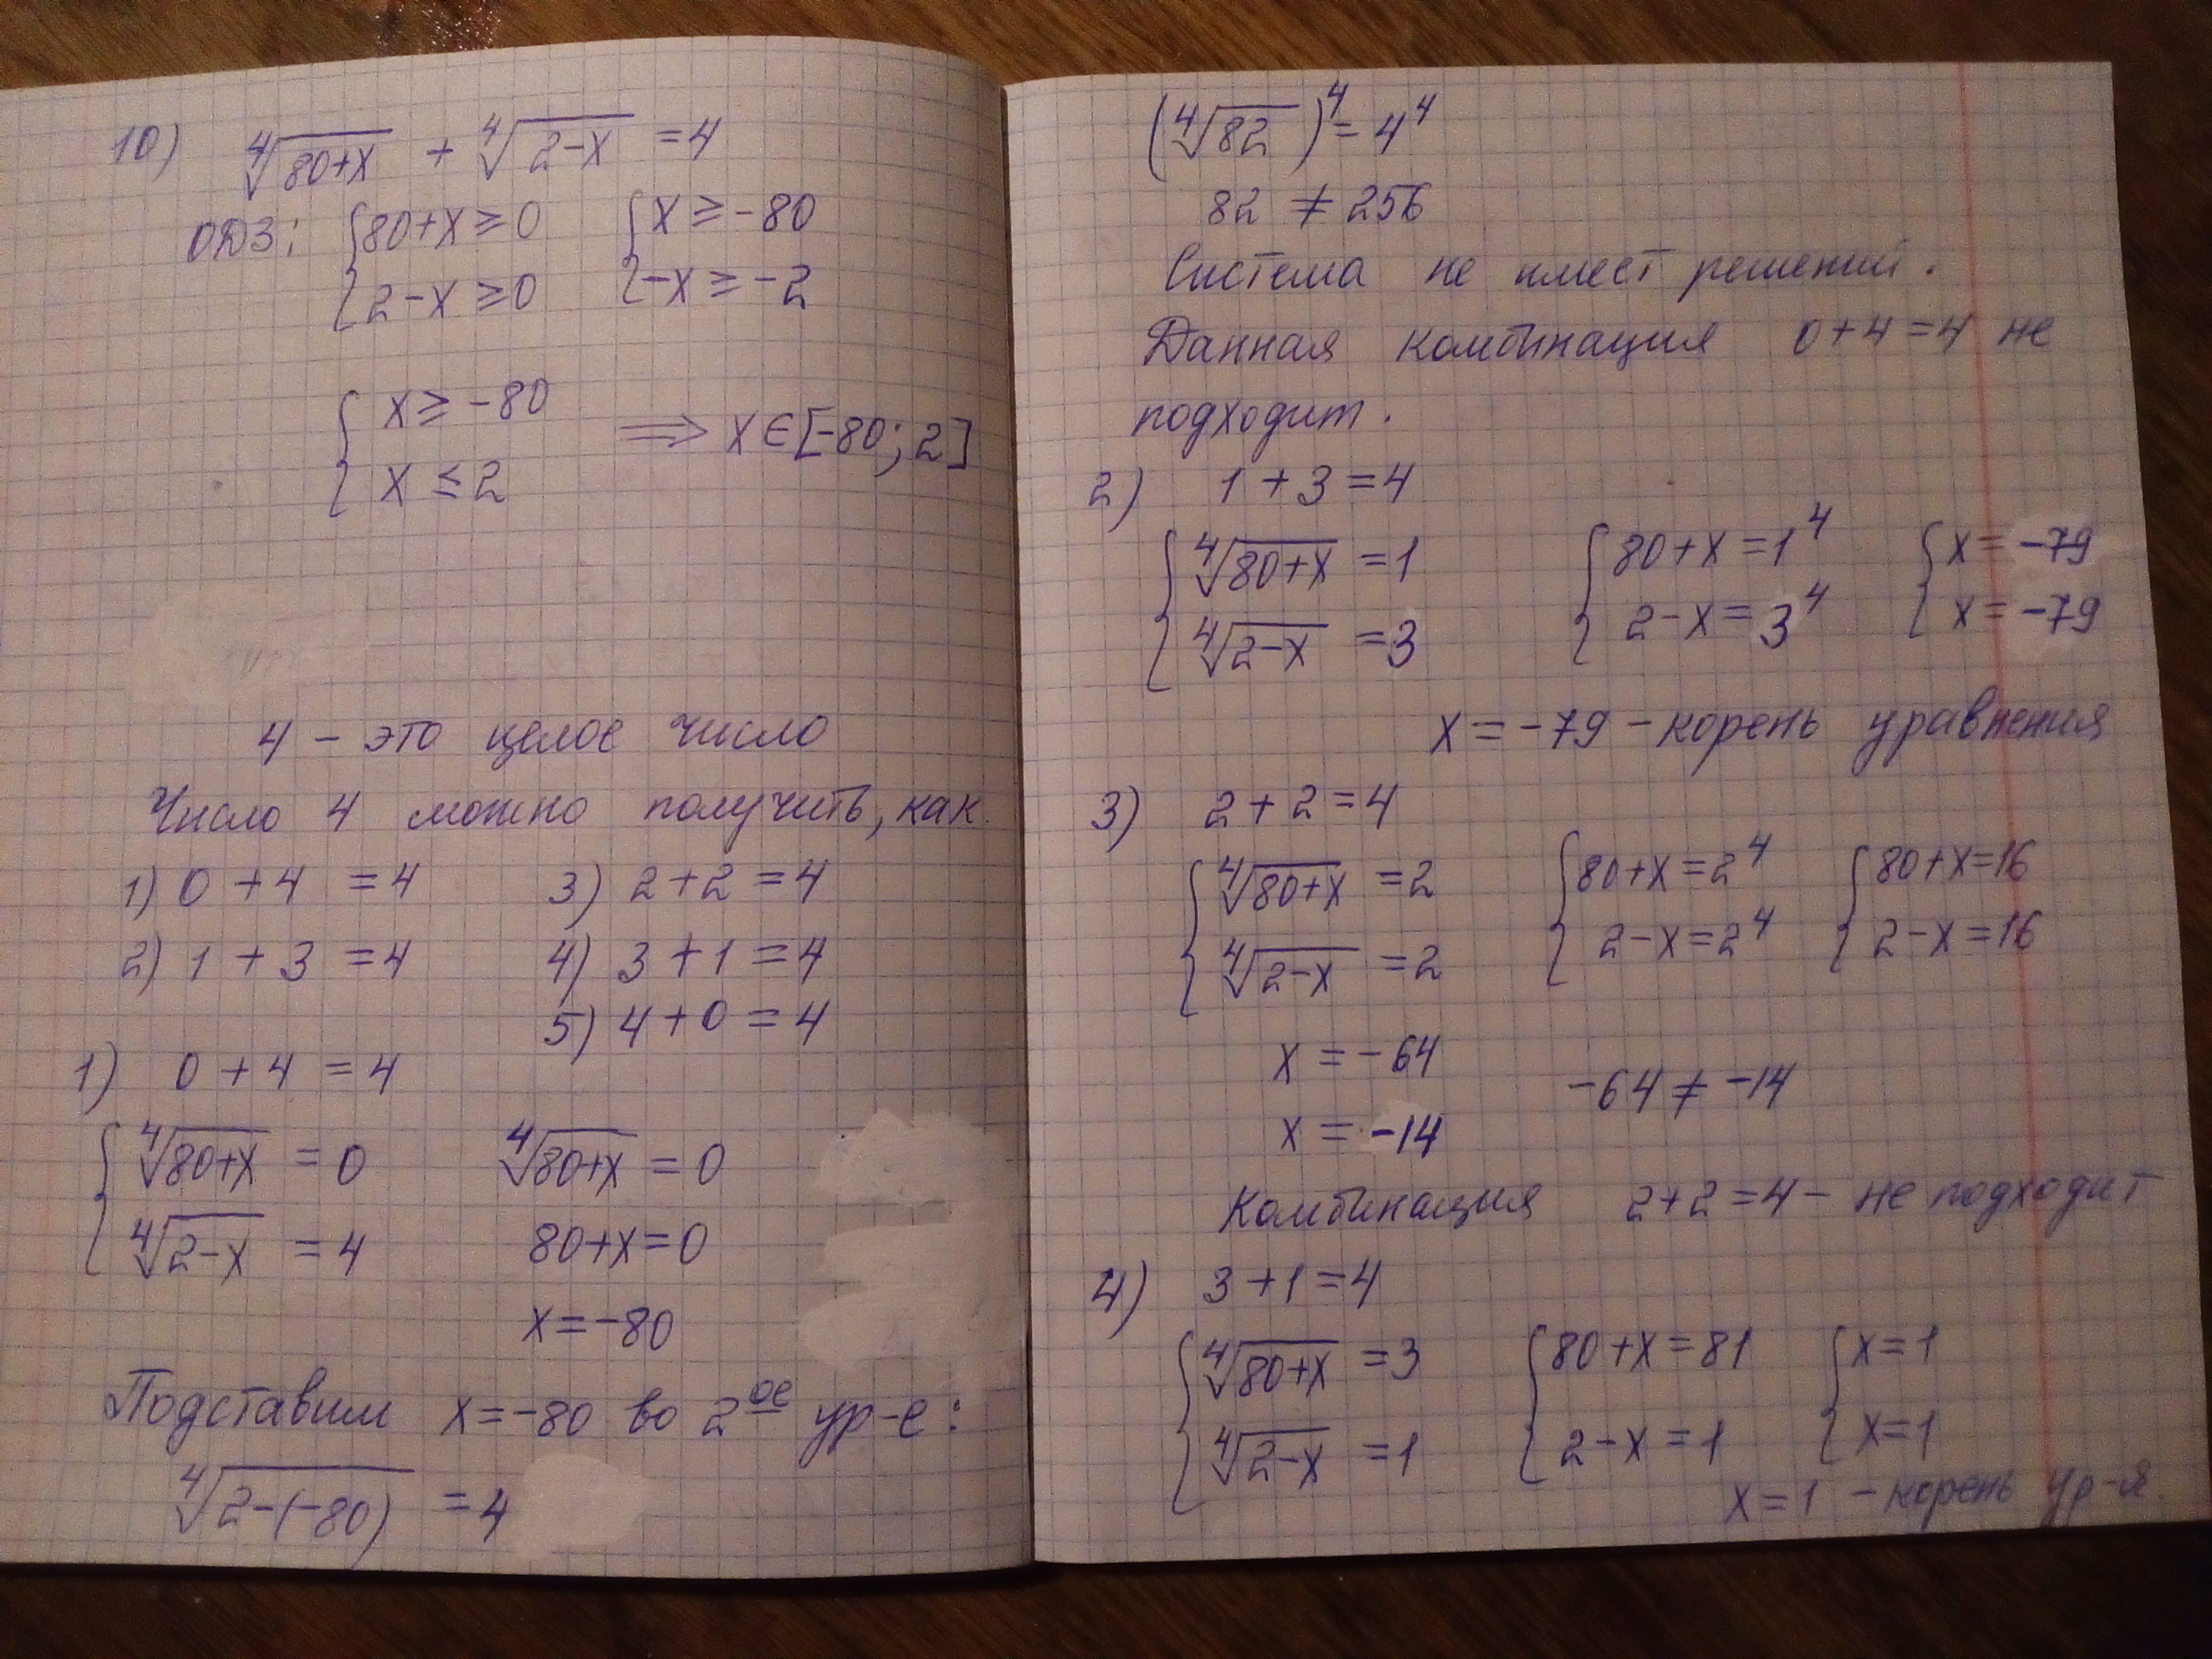 10) ∜(80+x) + ∜(2-x) = 4
ОДЗ: {80+x ≥ 0 {x ≥ -80
{2-x ≥ 0 {-x ≥ -2
{x ≥ -80
{x ≤ 2 ⟹ x ∈ [-80; 2]
4 – это целое число
Число 4 можно получить, как
1) 0 + 4 = 4 3) 2 + 2 = 4
2) 1 + 3 = 4 4) 3 + 1 = 4
5) 4 + 0 = 4
1) 0 + 4 = 4
{∜(80+x) = 0 ∜(80+x) = 0
{∜(2-x) = 4 80+x = 0
x = -80
Подставим x = -80 во 2ое ур-е:
∜(2-(-80)) = 4
(∜82)^4 = 4^4
82 ≠ 256
Система не имеет решений.
Данная комбинация 0+4=4 не
подходит.
2) 1 + 3 = 4
{∜(80+x) = 1 {80+x = 1^4 {x = -79
{∜(2-x) = 3 {2-x = 3^4 {x = -79
x = -79 – корень уравнения
3) 2 + 2 = 4
{∜(80+x) = 2 {80+x = 2^4 {80+x = 16
{∜(2-x) = 2 {2-x = 2^4 {2-x = 16
x = -64 -64 ≠ -14
x = -14
Комбинация 2+2=4 – не подходит
4) 3 + 1 = 4
{∜(80+x) = 3 {80+x = 81 {x = 1
{∜(2-x) = 1 {2-x = 1 {x = 1
x = 1 – корень ур-я.